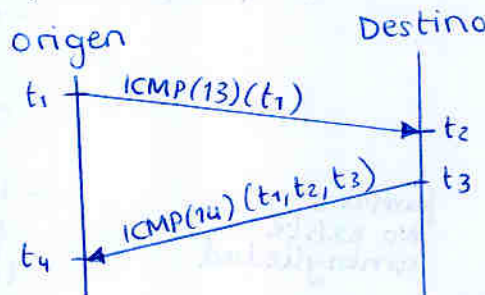 origen
Destino
t₁
ICMP(13)(t₁)
t₂
t₃
ICMP(14)(t₁,t₂,t₃)
t₄